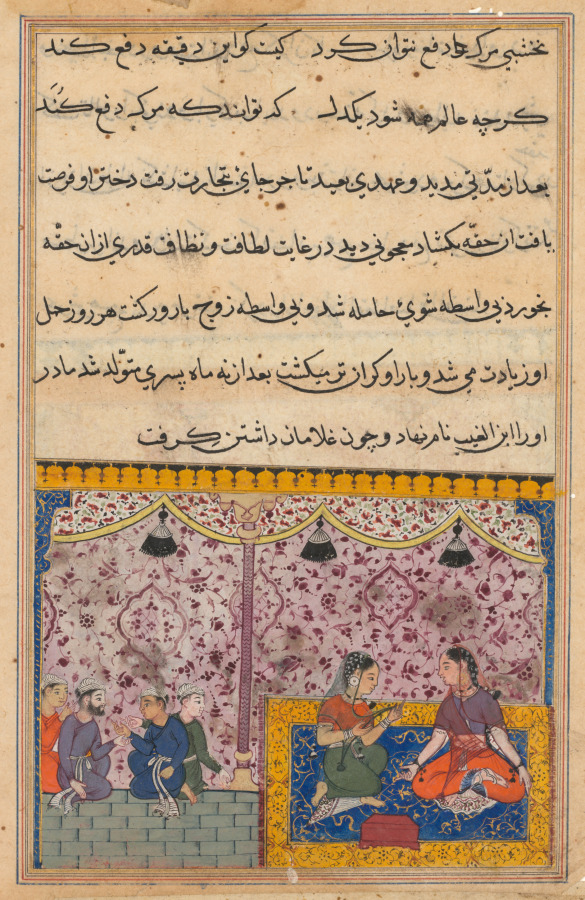 نخشبی مرک را دفع نتوان کرد کیت کو این دقیقه دفع کند
کرچه عالم همه شود یکدل که تواند که مرک دفع کند
بعد از مدّتی مدید و عهدی بعید تاجر جای تجارت رفت دختر او فرصت
یافت ان حقّه بکشاد معجونی دید در غایت لطافت و نظافت قدری از ان حقّه
بخورد بی واسطه شوی حامله شد و بی واسطه زوج بارور کشت هر روز حمل
او زیادت می شد و بار او کران تر میکشت بعد از نه ماه پسری متولّد شد مادر
او را ابن الغیب نام نهاد و چون غلامان داشتن کرفت